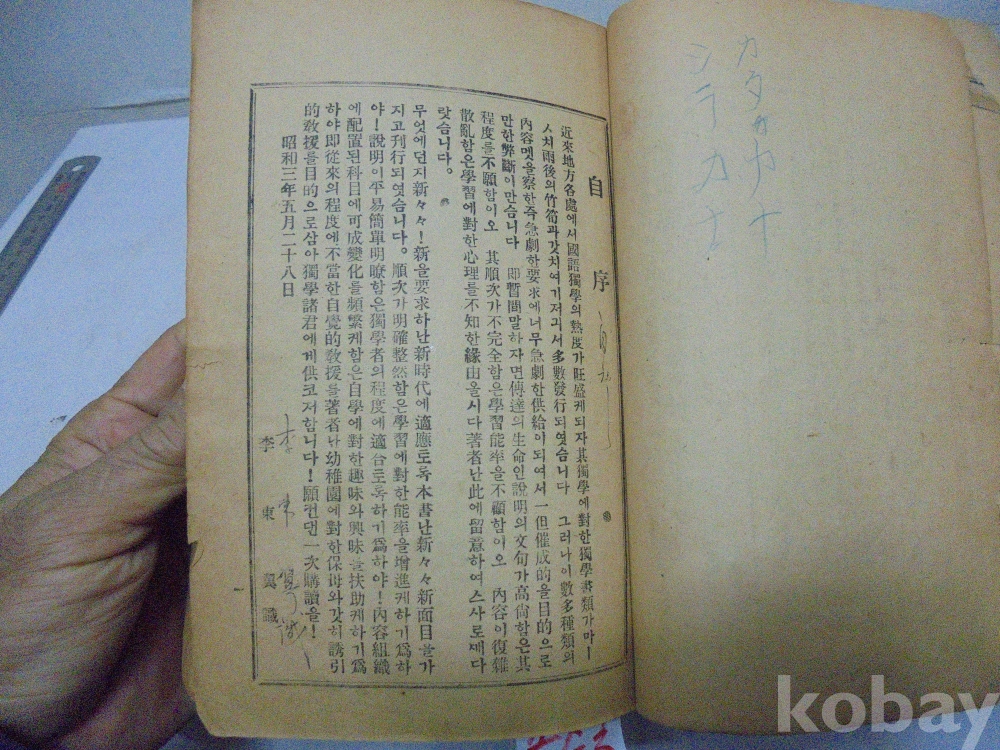 カタカカナ
自序
近來地方各處에서國語獨學의熱度가旺盛케되자其獨學에對한獨學書類가마ー
ㅅ치雨後의竹筍과갓치여기저긔서多數發行되엿슴니다 그러나이數多種類의
內容멧을察한즉急劇한要求에너무急劇한供給이되여서一但催成的을目的으로
만한弊斷이만슴니다 即暫間말하자면傳達의生命인說明의文句가高尙함은其
程度를不願함이오 其順次가不完全함은學習能率을不顧함이오 內容이復雜
散亂함은學習에對한心理를不知한緣由올시다著者난此에留意하여스사로깨다
랏슴니다.
무엇에던지新々々!新을要求하난新時代에適應토록本書난新々々新面目을가
지고刊行되엿슴니다。順次가明確整然함은學習에對한能率을增進케하기爲하
야!說明이平易簡單明瞭함은獨學者의程度에適合토록하기爲하야!內容組織
에配置된科目에可成變化를頻繁케함은自學에對한趣味와興味를扶助케하기爲
하야即從來의程度에不當한自覺的敎援를著者난幼稚園에對한保母와갓히誘引
的敎援를目的으로삼아獨學諸君에게供코저함니다!願컨댄一次購讀을!
昭和三年五月二十八日
李東 識
kobay